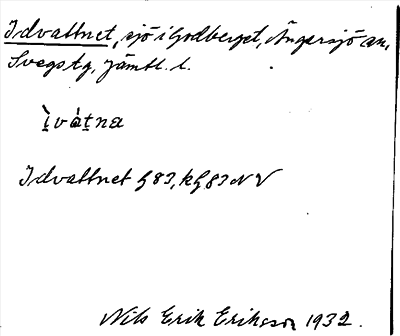 Idvattnet, sjö i Godberget, Ängersjö an,
Svegs tg, Jämtl. l.
ìvàtna
Idvattnet G 83, kG 83 NV
Nils Erik Eriksson 1932.